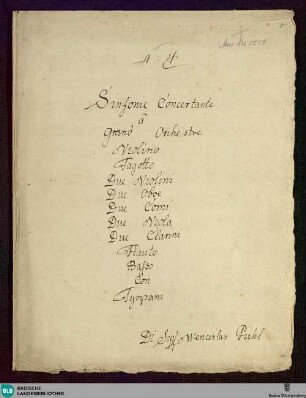 Sinfonie Concertante
à
Grand Orchestre
Violino
Fagotto
Due Violini
Due Oboe
Due Corni
Due Viola
Due Clarini
Flauto
Basso
Con
Tympani
Di Sigl Wenceslas Pichl
BLB
BADISCHE
LANDESBIBLIOTHEK